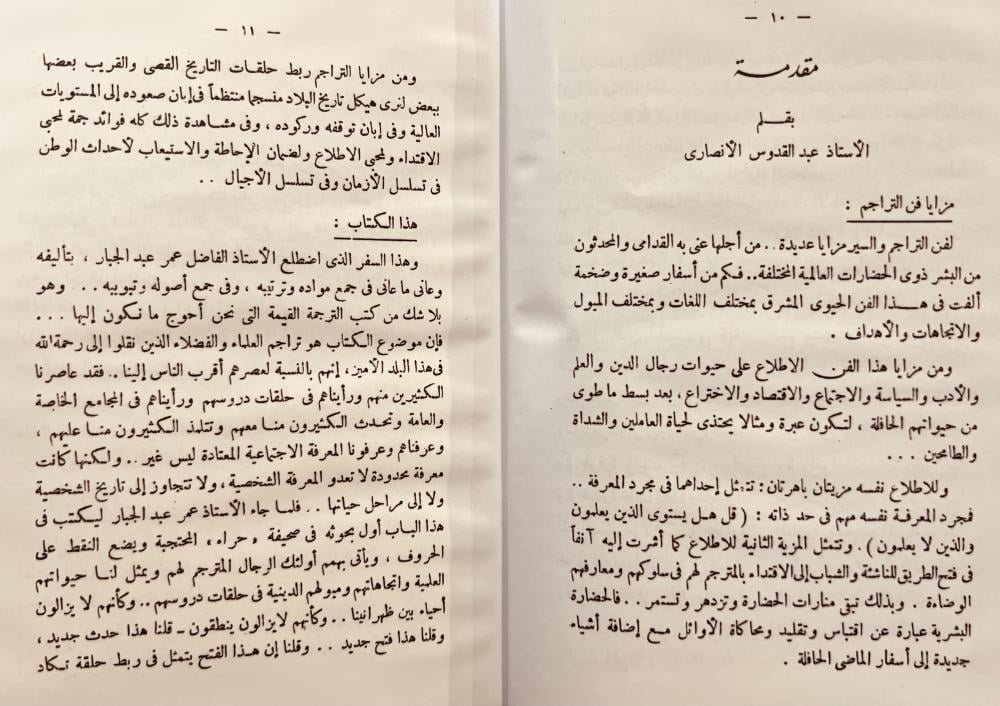 — ١٠ —
مقدمة
بقلم
الأستاذ عبد القدوس الأنصارى
مزايا فن التراجم :
لفن التراجم والسير مزايا عديدة . . من أجلها عنى به القدامى والمحدثون
من البشر ذوى الحضارات العالمية المختلفة . . فكم من أسفار صغيرة وضخمة
ألفت فى هذا الفن الحيوى المشرق بمختلف اللغات وبمختلف الميول
والاتجاهات والأهداف .
ومن مزايا هذا الفن الاطلاع على حيوات رجال الدين والعلم
والأدب والسياسة والاجتماع والاقتصاد والاختراع ، بعد بسط ما طوى
من حيواتهم الحافلة ، لتكون عبرة ومثالا يحتذى لحياة العاملين والشداة
والطامحين . . .
وللاطلاع نفسه مزيتان باهرتان : تتمثل إحداهما فى مجرد المعرفة . .
فمجرد المعرفة نفسه مهم فى حد ذاته : ( قل هل يستوى الذين يعلمون
والذين لا يعلمون ) . وتتمثل المزية الثانية للاطلاع كما أشرت إليه آنفاً
فى فتح الطريق للناشئة والشباب إلى الاقتداء بالمترجم لهم فى سلوكهم ومعارفهم
الوضاءة . وبذلك تبقى منارات الحضارة وتزدهر وتستمر . . فالحضارة
البشرية عبارة عن اقتباس وتقليد ومحاكاة الأوائل مع إضافة أشياء
جديدة إلى أسفار الماضى الحافلة .
— ١١ —
ومن مزايا التراجم ربط حلقات التاريخ القصى والقريب بعضها
ببعض لنرى هيكل تاريخ البلاد منسجما منتظماً فى إبان صعوده إلى المستويات
العالية وفى إبان توقفه وركوده ، وفى مشاهدة ذلك كله فوائد جمة لمحبى
الاقتداء ولمحبى الاطلاع ولضمان الإحاطة والاستيعاب لأحداث الوطن
فى تسلسل الأزمان وفى تسلسل الأجيال . .
هذا الكتاب :
وهذا السفر الذى اضطلع الأستاذ الفاضل عمر عبد الجبار ، بتأليفه
وعانى ما عانى فى جمع مواده وترتيبه ، وفى جمع أصوله وتبويبه . . . وهو
بلا شك من كتب الترجمة القيمة التى نحن أحوج ما نكون إليها . . .
فإن موضوع الكتاب هو تراجم العلماء والفضلاء الذين نقلوا إلى رحمة الله
فى هذا البلد الأمين ، إنهم بالنسبة لعصرهم أقرب الناس إلينا . . فقد عاصرنا
الكثيرين منهم ورأيناهم فى حلقات دروسهم ورأيناهم فى المجامع الخاصة
والعامة وتحدث الكثيرون منا معهم وتتلمذ الكثيرون منا عليهم ،
وعرفناهم وعرفونا المعرفة الاجتماعية المعتادة ليس غير . . ولكنها كانت
معرفة محدودة لا تعدو المعرفة الشخصية ، ولا تتجاوز إلى تاريخ الشخصية
ولا إلى مراحل حياتها . . فلما جاء الأستاذ عمر عبد الجبار ليكتب فى
هذا الباب أول بحوثه فى صحيفة « حراء » المحتجبة ويضع النقط على
الحروف ، ويأتى بهم أولئك الرجال المترجم لهم ويمثل لنا حيواتهم
العلمية واتجاهاتهم وميولهم الدينية فى حلقات دروسهم . . وكأنهم لا يزالون
أحياء بين ظهرانينا . . وكأنهم لا يزالون ينطقون – قلنا هذا حدث جديد ،
وقلنا هذا فتح جديد . . وقلنا إن هذا الفتح يتمثل فى ربط حلقة تكاد